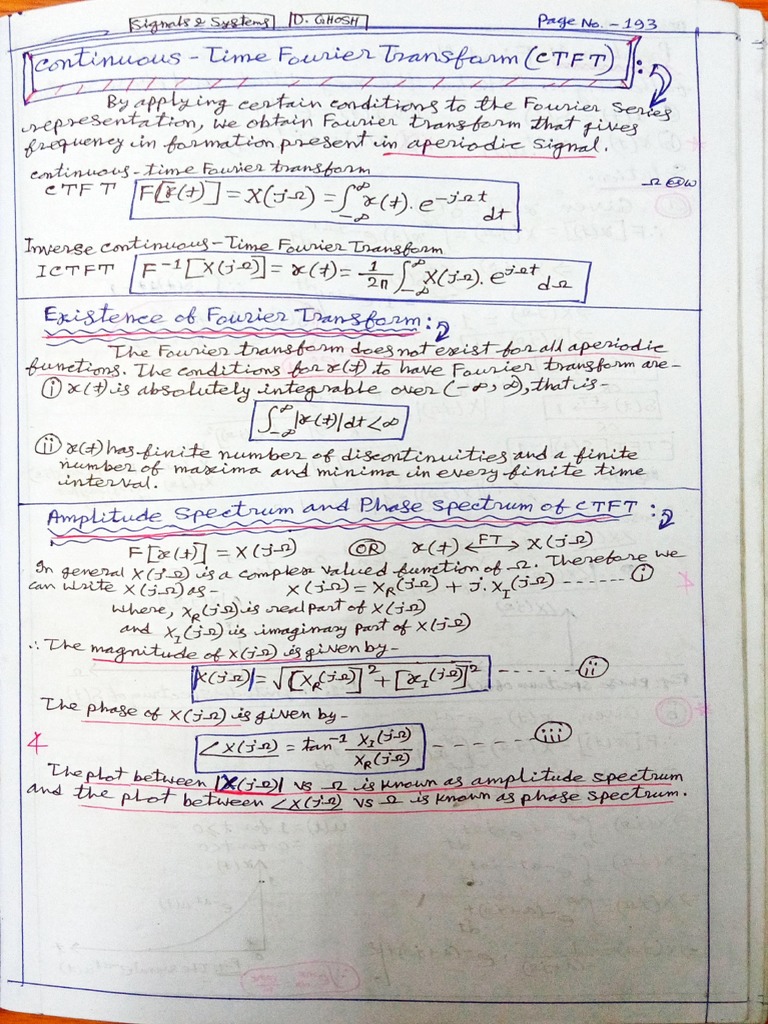 Signals & Systems D. GHOSH Page No. - 193
Continuous - Time Fourier Transform (CTFT) :
By applying certain conditions to the Fourier Series
representation, we obtain Fourier transform that gives
frequency in formation present in aperiodic signal.
continuous-time Fourier transform
CTFT F[x(t)] = X(jΩ) = ∫_{-∞}^{∞} x(t). e^{-jΩt} dt
Inverse continuous-Time Fourier Transform
ICTFT F^{-1}[X(jΩ)] = x(t) = 1/2π ∫_{-∞}^{∞} X(jΩ). e^{jΩt} dΩ
Existence of Fourier Transform :
The Fourier transform does not exist for all aperiodic
functions. The conditions for x(t) to have Fourier transform are-
(i) x(t) is absolutely integrable over (-∞, ∞), that is-
∫_{-∞}^{∞} |x(t)| dt < ∞
(ii) x(t) has finite number of discontinuities and a finite
number of maxima and minima in every finite time
interval.
Amplitude Spectrum and Phase Spectrum of CTFT :
F[x(t)] = X(jΩ) (OR) x(t) <-FT-> X(jΩ)
In general X(jΩ) is a complex valued function of Ω. Therefore we
can write X(jΩ) as- X(jΩ) = X_R(jΩ) + j. X_I(jΩ) ------ (i)
where, X_R(jΩ) is real part of X(jΩ)
and X_I(jΩ) is imaginary part of X(jΩ)
∴ The magnitude of X(jΩ) is given by-
|X(jΩ)| = √([X_R(jΩ)]^2 + [x_I(jΩ)]^2) ------ (ii)
The phase of X(jΩ) is given by-
∠X(jΩ) = tan^{-1} X_I(jΩ)/X_R(jΩ) ------ (iii)
The plot between |X(jΩ)| vs Ω is known as amplitude spectrum
and the plot between ∠X(jΩ) vs Ω is known as phase spectrum.